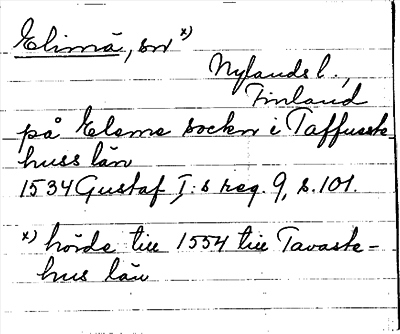 Elimä, sn x)
Nylands l.,
Finland
på Elema sockn i Taffuste-
huss län
1534 Gustaf I:s reg. 9, s. 101.
x) hörde till 1554 till Tavaste-
hus län